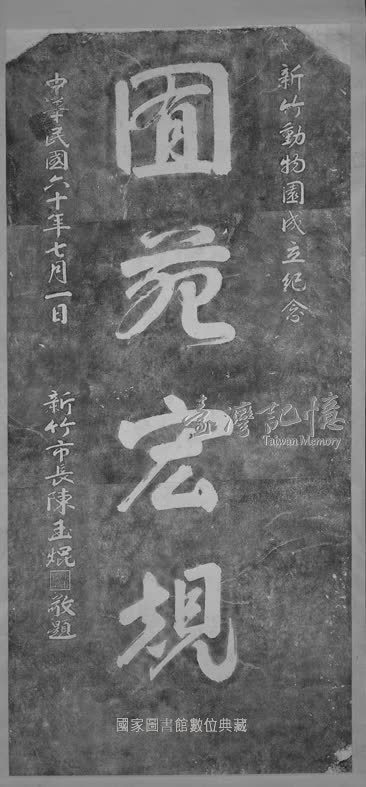 新竹動物園成立紀念
囿苑宏規
中華民國六十年七月一日
新竹市長陳玉焜敬題
臺灣記憶
Taiwan Memory
國家圖書館數位典藏